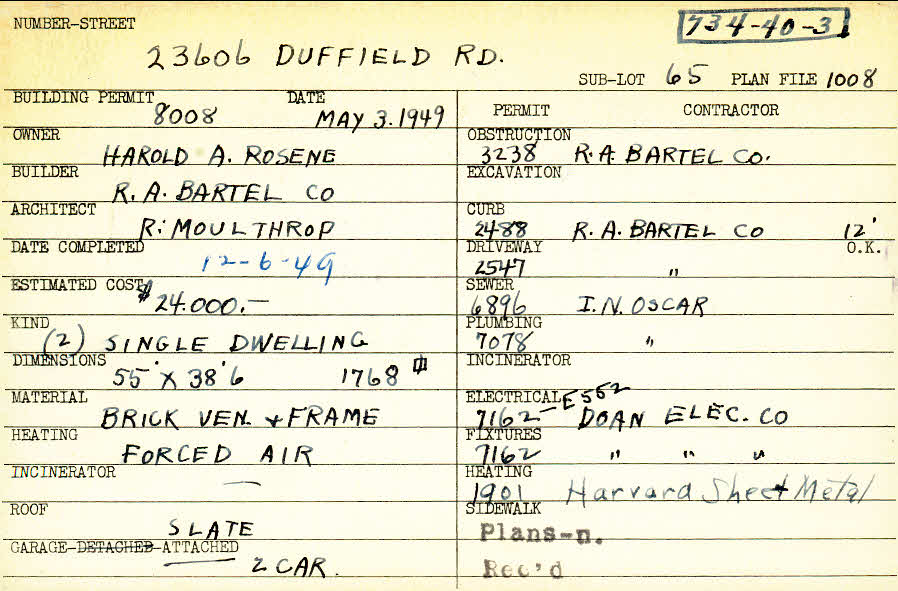 NUMBER-STREET
734-40-3
23606 DUFFIELD RD.
SUB-LOT 65 PLAN FILE 1008
BUILDING PERMIT 8008 DATE MAY 3. 1949
OWNER HAROLD A. ROSENE
BUILDER R. A. BARTEL CO
ARCHITECT R. MOULTHROP
DATE COMPLETED 12-6-49
ESTIMATED COST $24.000.—
KIND (2) SINGLE DWELLING
DIMENSIONS 55' X 38'6 1768
MATERIAL BRICK VEN. + FRAME
HEATING FORCED AIR
INCINERATOR —
ROOF SLATE
GARAGE-DETACHED-ATTACHED
2 CAR.
PERMIT CONTRACTOR
OBSTRUCTION
3238 R. A. BARTEL CO.
EXCAVATION
CURB
2488 R. A. BARTEL CO 12'
DRIVEWAY O.K.
2547 "
SEWER
6896 I. N. OSCAR
PLUMBING
7078 "
INCINERATOR
ELECTRICAL
7162-E552 DOAN ELEC. CO
FIXTURES
7162 " " "
HEATING
1901 Harvard Sheet Metal
SIDEWALK
Plans-n.
Rec'd